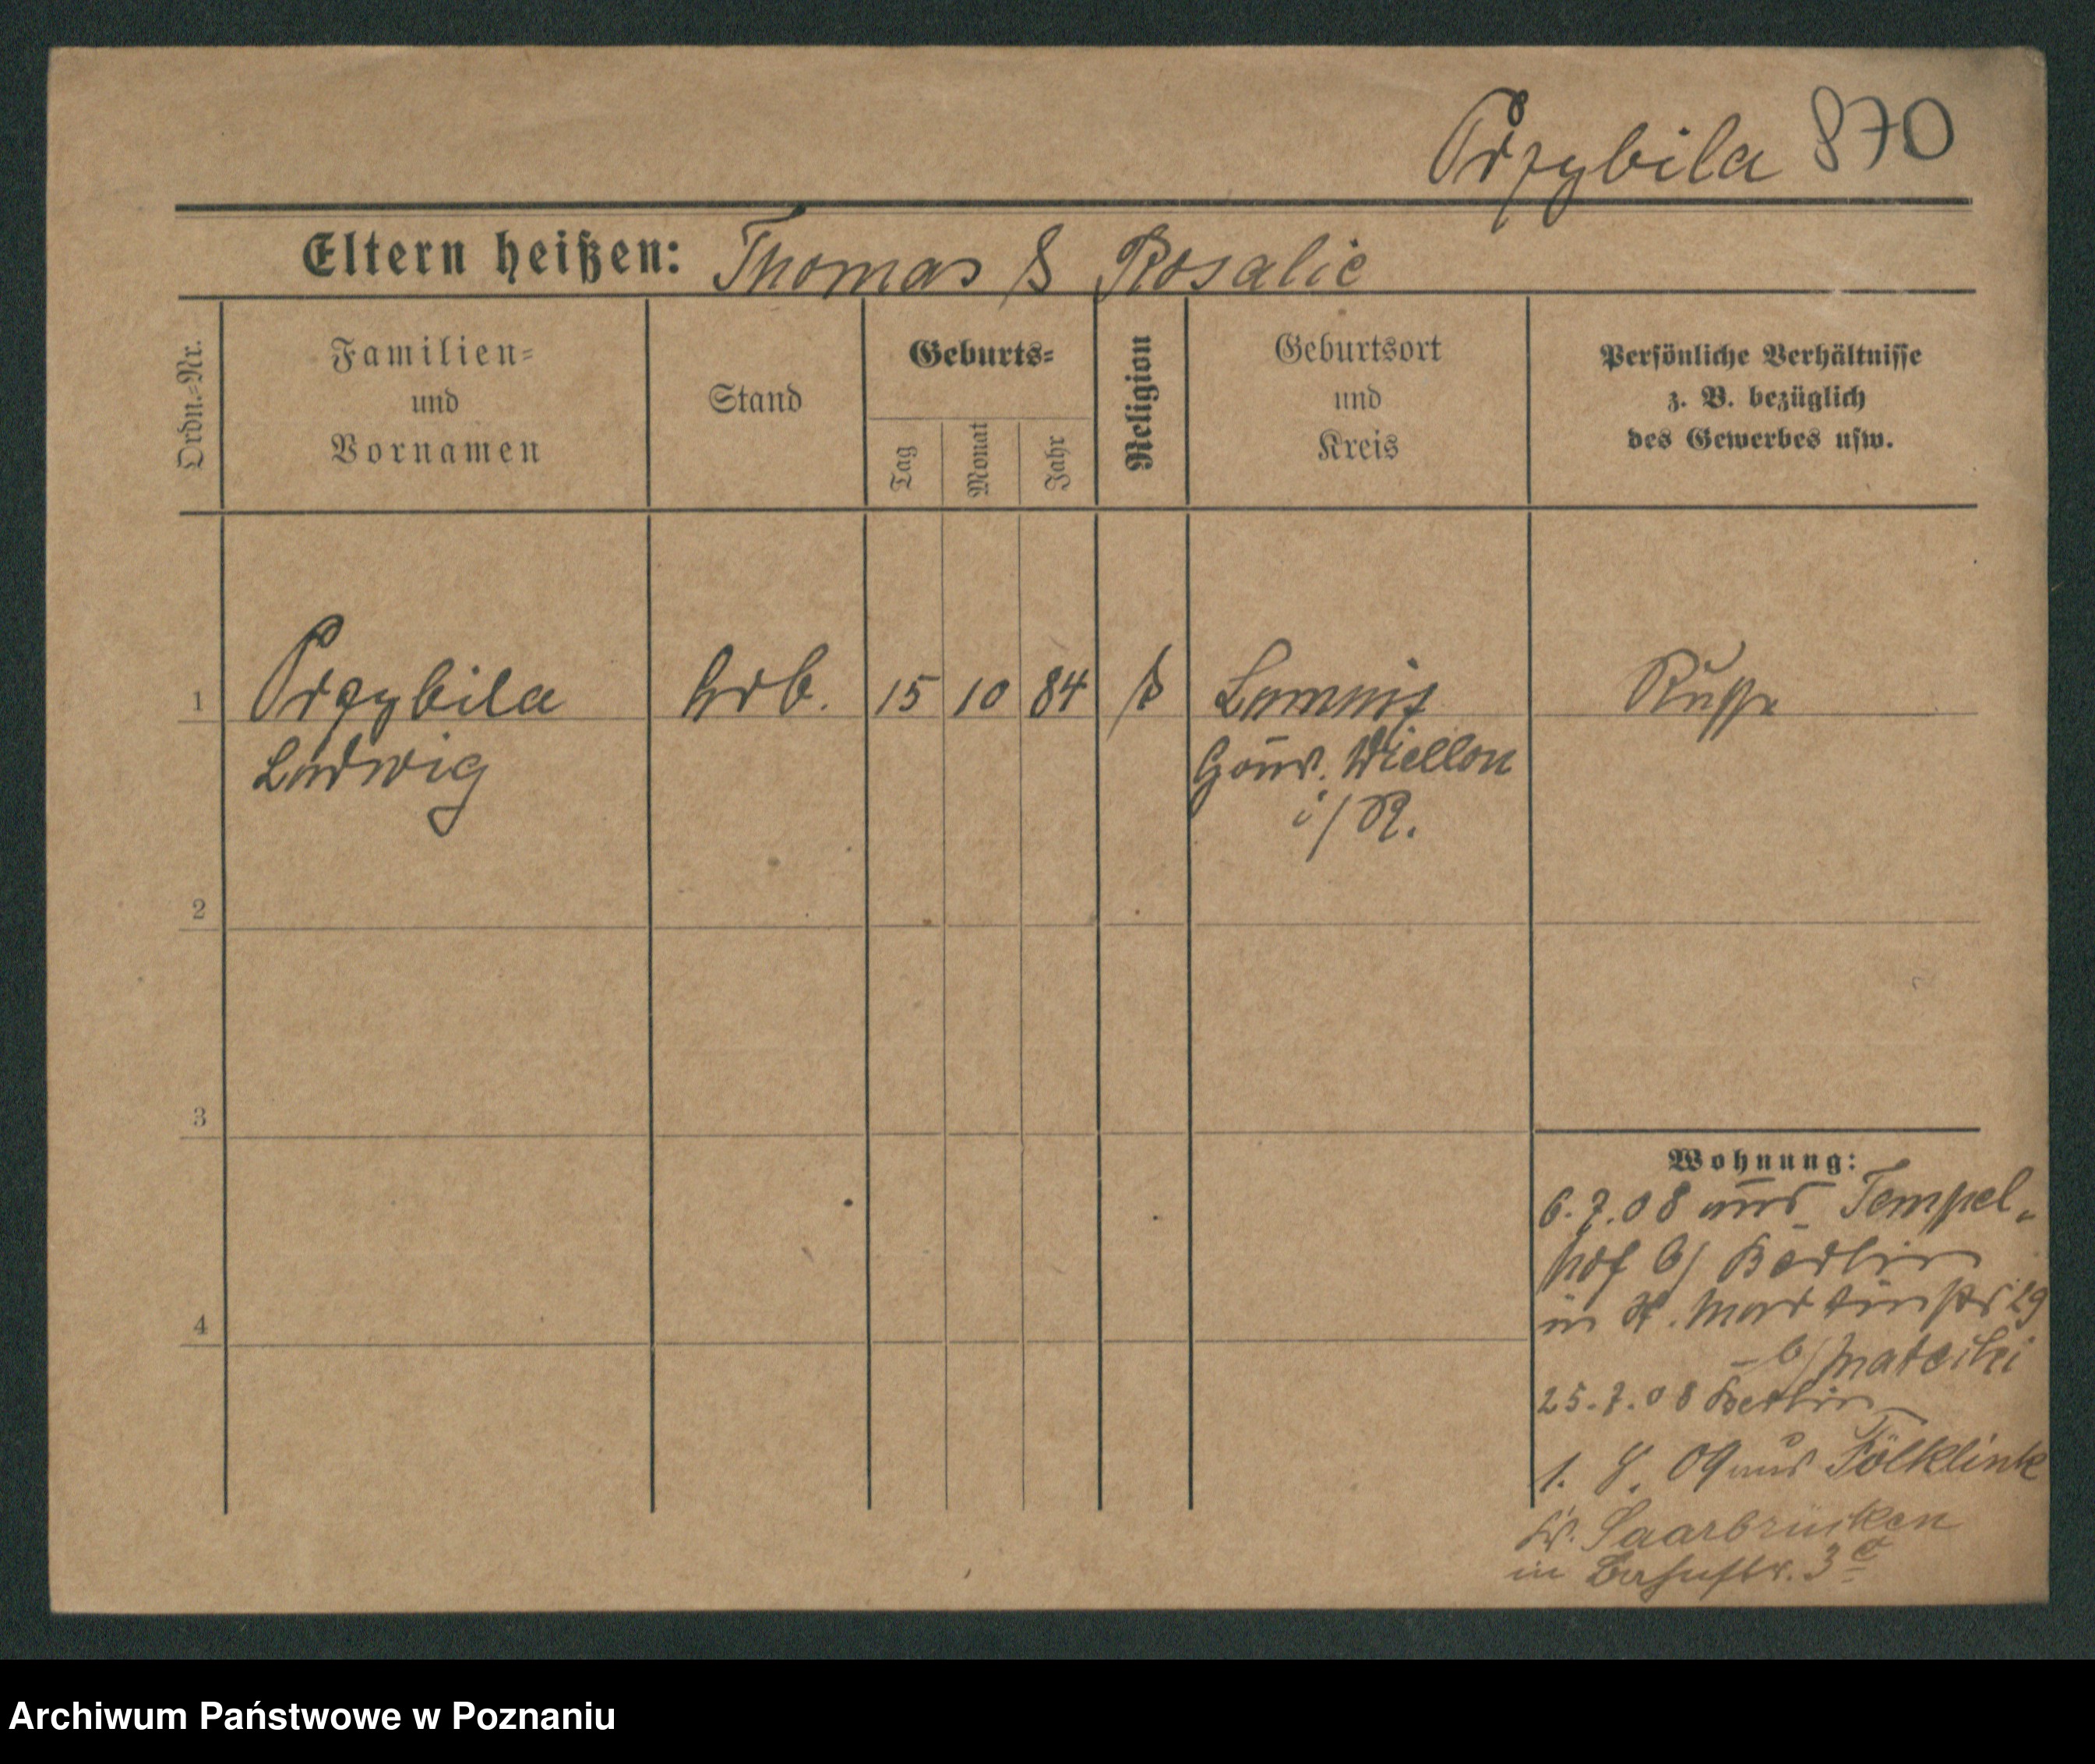 Przybila 870
Eltern heißen: Thomas & Rosalie
Ordn.-Nr.
Familien-
und
Vornamen
Stand
Geburts-
Tag
Monat
Jahr
Religion
Geburtsort
und
Kreis
Persönliche Verhältnisse
z. B. bezüglich
des Gewerbes usw.
1 Przybila Arb. 15 10 84 k Russe
Ludwig
Gouv. Wiellon
i/R.
2
3
4
Wohnung:
6.7.08 aus Tempel-
hof b/ Berlin
in St. Martinstr 29
b/
25.7.08 Berlin
1. 8. 09 aus Fölklink
Kr. Saarbrücken
in 3
Archiwum Państwowe w Poznaniu